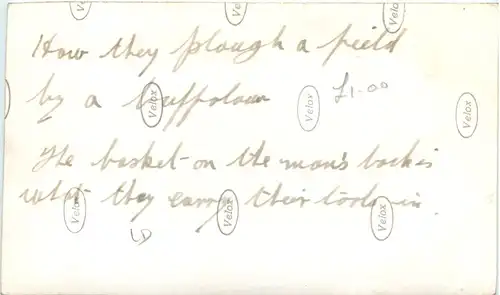 Velox Velox
How they plough a field
by a buffolow Velox Velox £1-00 Velox
The basket on the man's back is
what they carry their tools in.
Velox Velox Velox